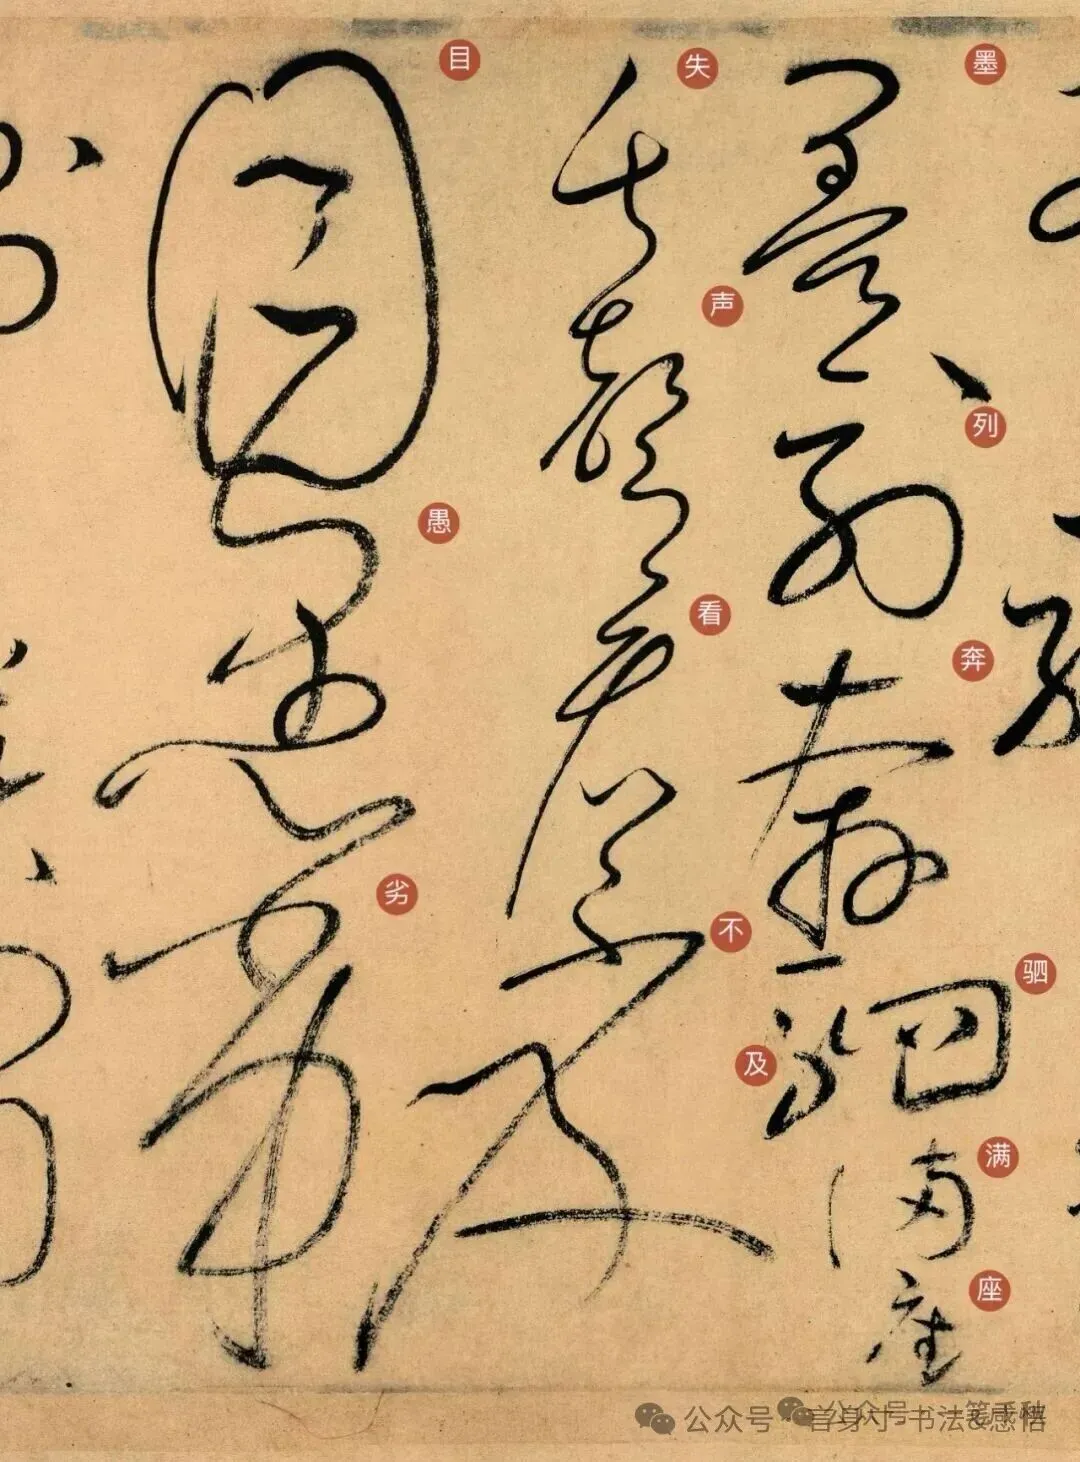 墨列奔驷满座
失声看不及
目愚劣
公众号·言身寸-书法&感悟